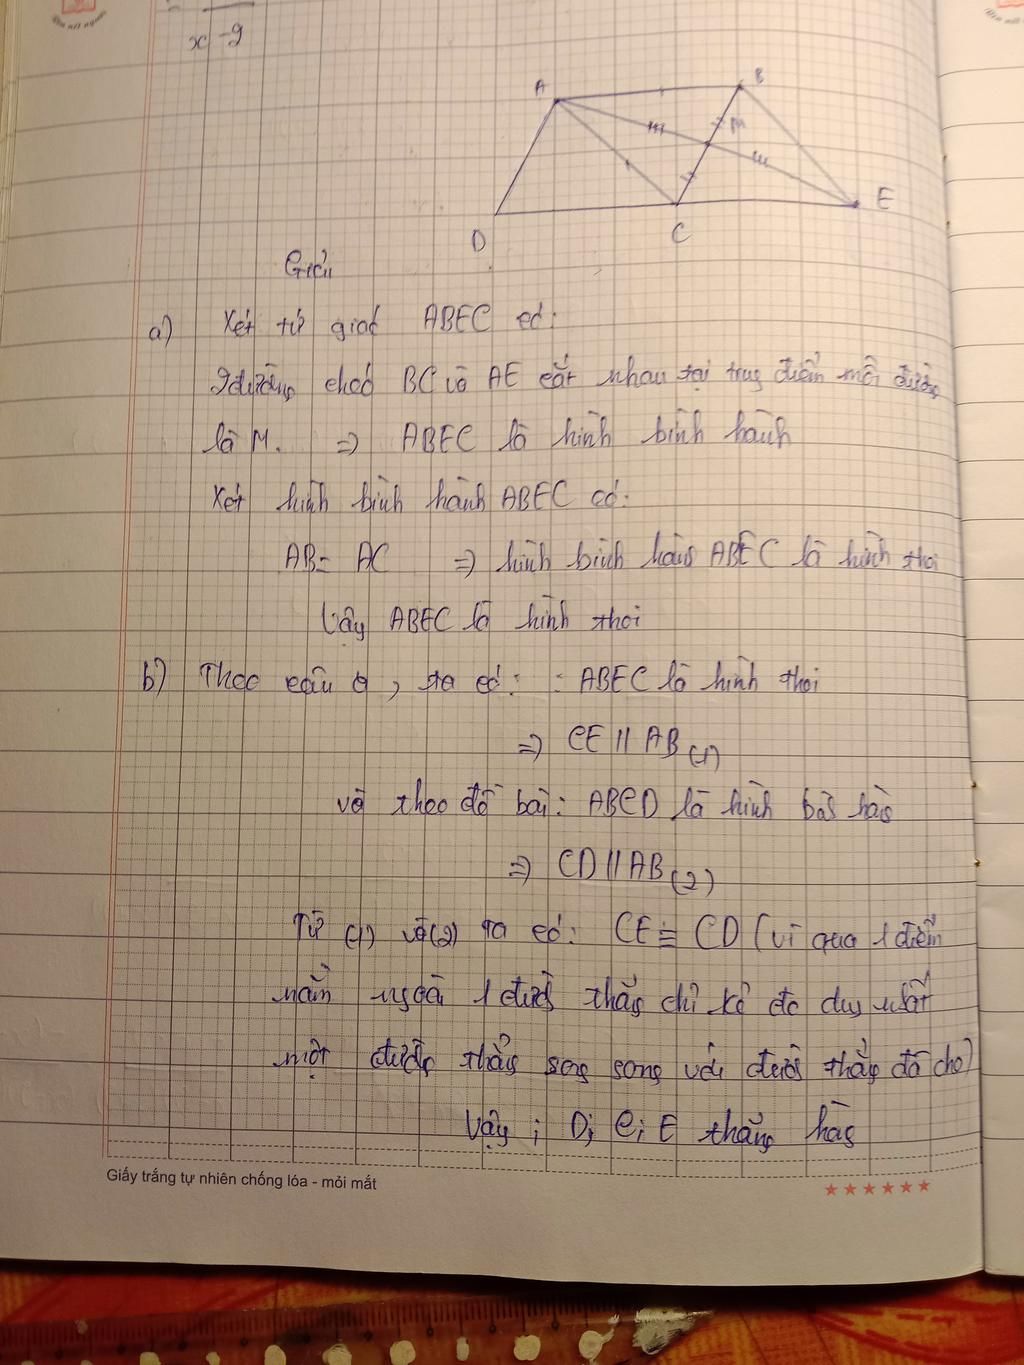 x - 9
A
B
M
E
D
C
Giải
a) Xét tứ giác ABEC có:
2 đường chéo BC và AE cắt nhau tại trug điểm mỗi đường
là M. => ABEC là hình bình hành
Xét hình bình hành ABEC có:
AB = AC => hình bình hàng ABEC là hình thoi
Vậy ABEC là hình thoi
b) Theo câu a, ta có: : ABEC là hình thoi
=> CE // AB (1)
và theo đề bài: ABCD là hình bàh hàh
=> CD // AB (2)
Từ (1) và (2) ta có: CE ≡ CD (vì qua 1 điểm
nằm ngoài 1 đườg thẳg chỉ kẻ đc duy nhất
một đườg thẳg sog song với đườg thẳg đã cho)
Vậy ; D; C; E thẳng hàg
Giấy trắng tự nhiên chống lóa - mỏi mắt